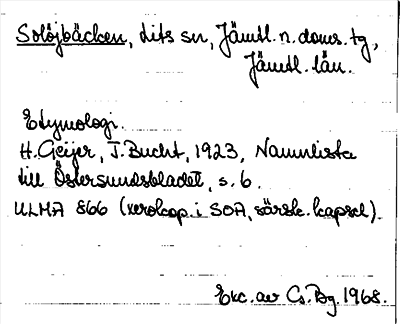 Solöjbäcken, Lits sn, Jämtl. n. doms. tg,
Jämtl. län.
Etymologi.
H. Geijer, T. Bucht, 1923, Namnlista
till Östersundsbladet, s. 6.
ULMA 866 (xerokop. i SOA, särsk. kapsel).
Exc. av Cs. Bg. 1968.